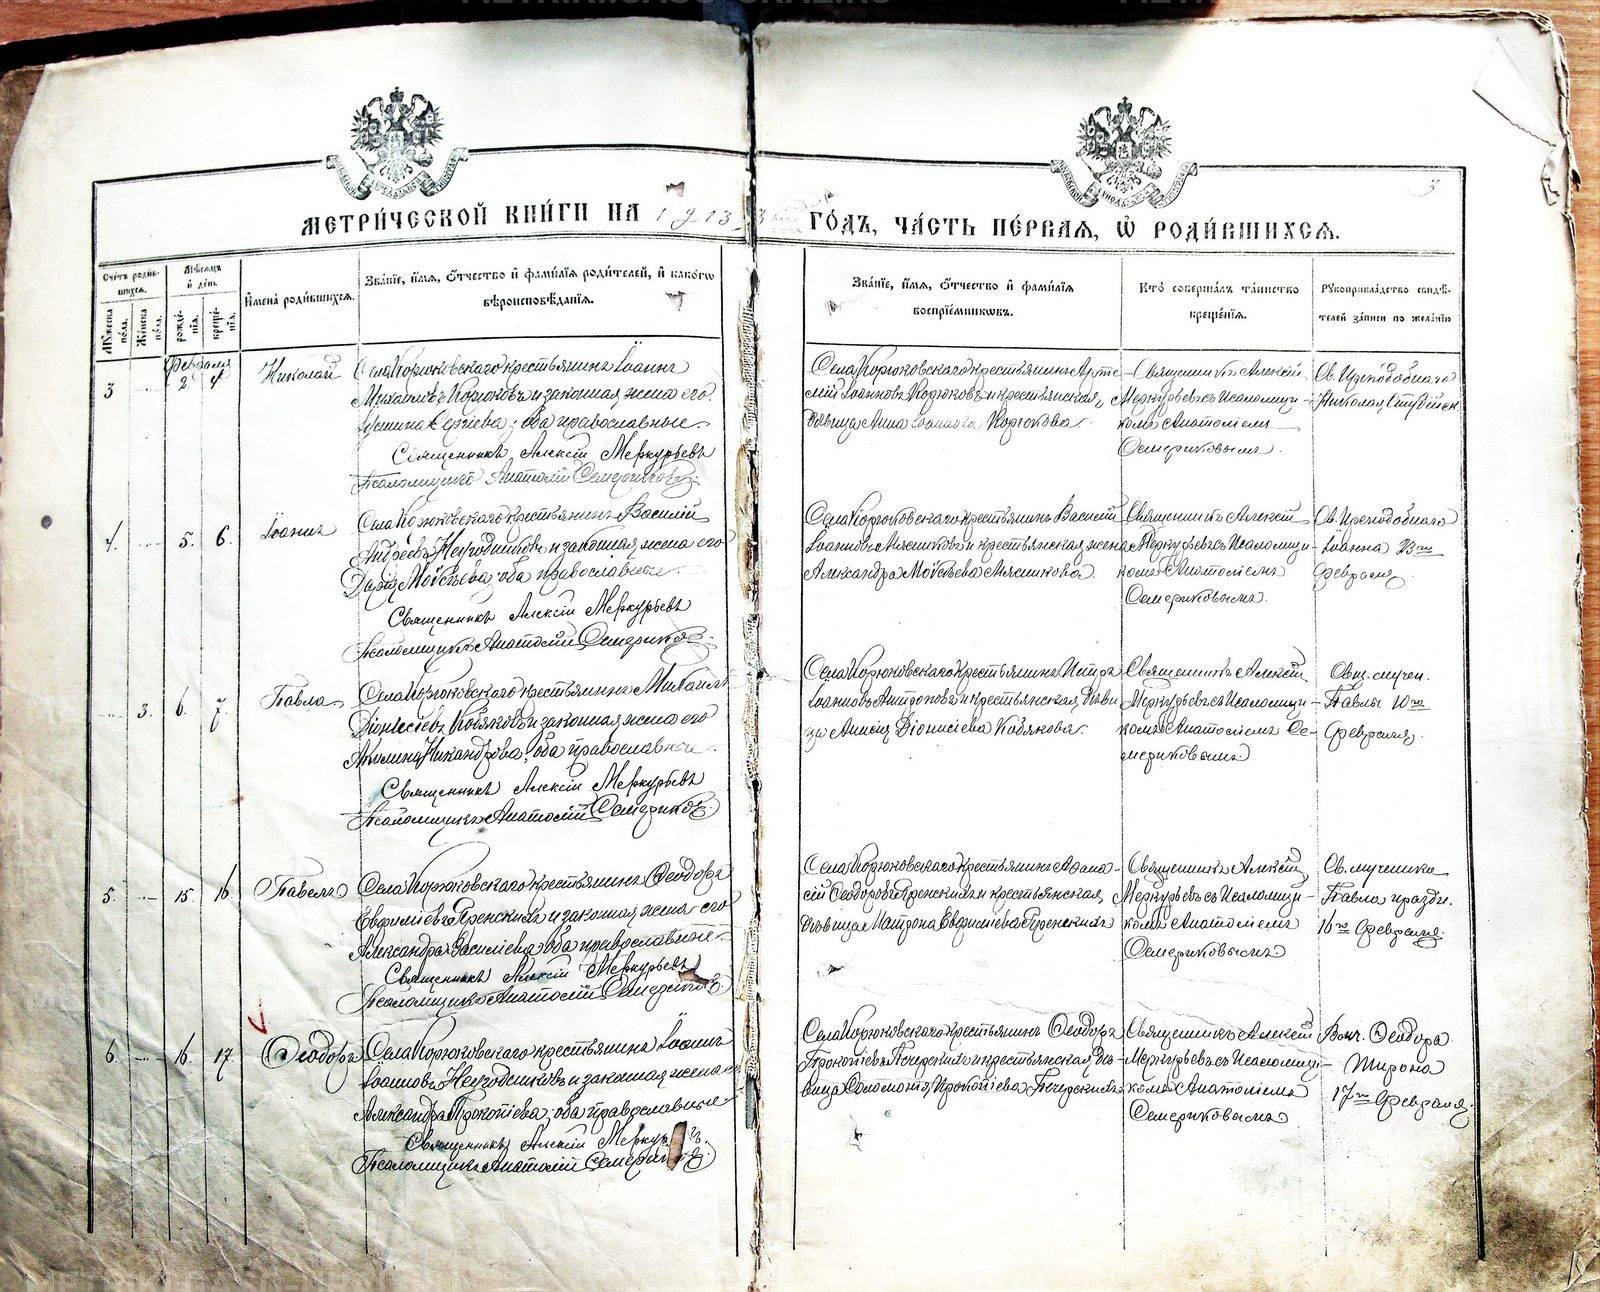 МЕТРИ́ЧЕСКОЙ КНИ́ГИ НА 1913
ГО́ДЪ, ЧА́СТЬ ПЕ́РВАЯ, Ѡ҆ РОДИ́ВШИХСЯ.
3
Счетъ роди́в-
шихся.
Мѣсяцъ
и҆ де́нь
И҆мена̀ роди́вшихся.
Зва́нїе, и҆́мя, ѻ҆́тчество и҆ фами́лїя роди́телей, и҆ како́гѡ
вѣроисповѣ́данїя.
Му́жеска по́ла.
Же́нска по́ла.
рожде́-нїя.
креще́-нїя.
Зва́нїе, и҆́мя, ѻ҆́тчество и҆ фами́лїя
воспрїе́мникѡвъ.
Кто̀ соверша́лъ та́инство
креще́нїя.
Рꙋкоприкла́дство свидѣ́-
телей за́писи по жела́нїю
Февраля
3 2 4 Николай
Села Корюковскаго крестьянинъ Іоаннъ
Михаиловъ Корюковъ и законная жена его
Сергіева, оба православные
Священникъ Алексій Меркурьевъ
Псаломщикъ Анатолій Семериковъ
Села Корюковскаго крестьянинъ Арте-
мій Іоанновъ Корюковъ и крестьянская
дѣвица Анна Іоаннова Корюкова
Священникъ Алексій
Меркурьевъ съ псаломщи-
комъ Анатоліемъ
Семериковымъ
Св. Преподобнаго
Николая Студійск.
4. 5. 6. Іоаннъ
Села Корюковскаго крестьянинъ Василій
Андреевъ Негодниковъ и законная жена его
Дарія Моѵсеева, оба православные
Священникъ Алексій Меркурьевъ
Псаломщикъ Анатолій Семериковъ
Села Корюковскаго крестьянинъ Василій
Іоанновъ Мясниковъ и крестьянская жена
Александра Моѵсеева Мясникова
Священникъ Алексій
Меркурьевъ съ псаломщи-
комъ Анатоліемъ
Семериковымъ
Св. Преподобнаго
Іоанна
февраля
3. 6. 7 Павла
Села Корюковскаго крестьянинъ Михаилъ
Діонисіевъ Кобяковъ и законная жена его
Акилина Никандрова, оба православные
Священникъ Алексій Меркурьевъ
Псаломщикъ Анатолій Семериковъ
Села Корюковскаго крестьянинъ Петръ
Іоанновъ Антроповъ и крестьянская дѣви-
ца Діонисіева Кобякова
Священникъ Алексій
Меркурьевъ съ псаломщи-
комъ Анатоліемъ Се-
мериковымъ
Свщ. мучен.
Павлы 10го
февраля
5. 15. 16 Павелъ
Села Корюковскаго крестьянинъ Ѳеодоръ
Евфиміевъ и законная жена его
Александра Василіева, оба православные
Священникъ Алексій Меркурьевъ
Псаломщикъ Анатолій Семериковъ
Села Корюковскаго крестьянинъ Аѳана-
сій Ѳеодоровъ и крестьянская
дѣвица Матрона Евфиміева
Священникъ Алексій
Меркурьевъ съ псаломщи-
комъ Анатоліемъ
Семериковымъ
Св. мученика
Павла праздн.
16го февраля
6. 16. 17. Ѳеодоръ
Села Корюковскаго крестьянинъ Іоаннъ
Іоанновъ Негодниковъ и законная жена его
Александра Прокопіева, оба православные
Священникъ Алексій Меркурьевъ
Псаломщикъ Анатолій Семериковъ
Села Корюковскаго крестьянинъ Ѳеодоръ
Прокопіевъ и крестьянская дѣ-
вица Соломонія Прокопіева
Священникъ Алексій
Меркурьевъ съ псаломщи-
комъ Анатоліемъ
Семериковымъ
Вмч. Ѳеодора
Тирона
17го февраля